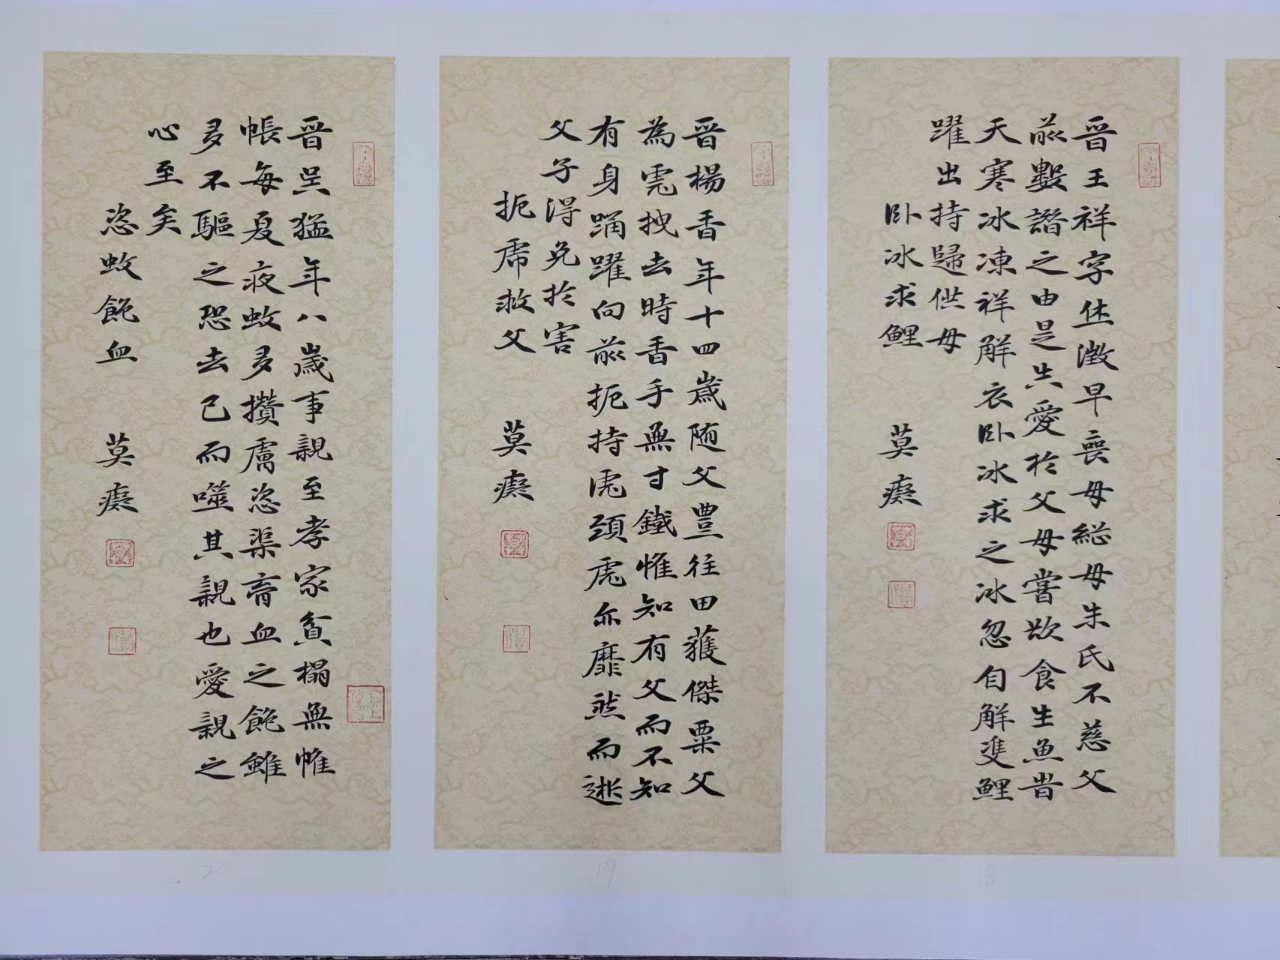 晋王祥字休澂早喪母継母朱氏不慈父
前數譖之由是失愛於父母嘗欲食生魚时
天寒冰凍祥解衣臥冰求之冰忽自解雙鯉
躍出持歸供母
臥冰求鯉
莫癡
晋楊香年十四歲随父豊往田蓃傑粟父
為虎拽去時香手無寸鐵惟知有父而不知
有身踊躍向前扼持虎頚虎亦靡然而逝
父子得免於害
扼虎救父
莫癡
晋吳猛年八歲事親至孝家貧榻無帷
帳每夏夜蚊多攢膚恣渠膏血之飽雖
多不驅之恐去己而噬其親也愛親之
心至矣
恣蚊飽血
莫癡
18
19
20